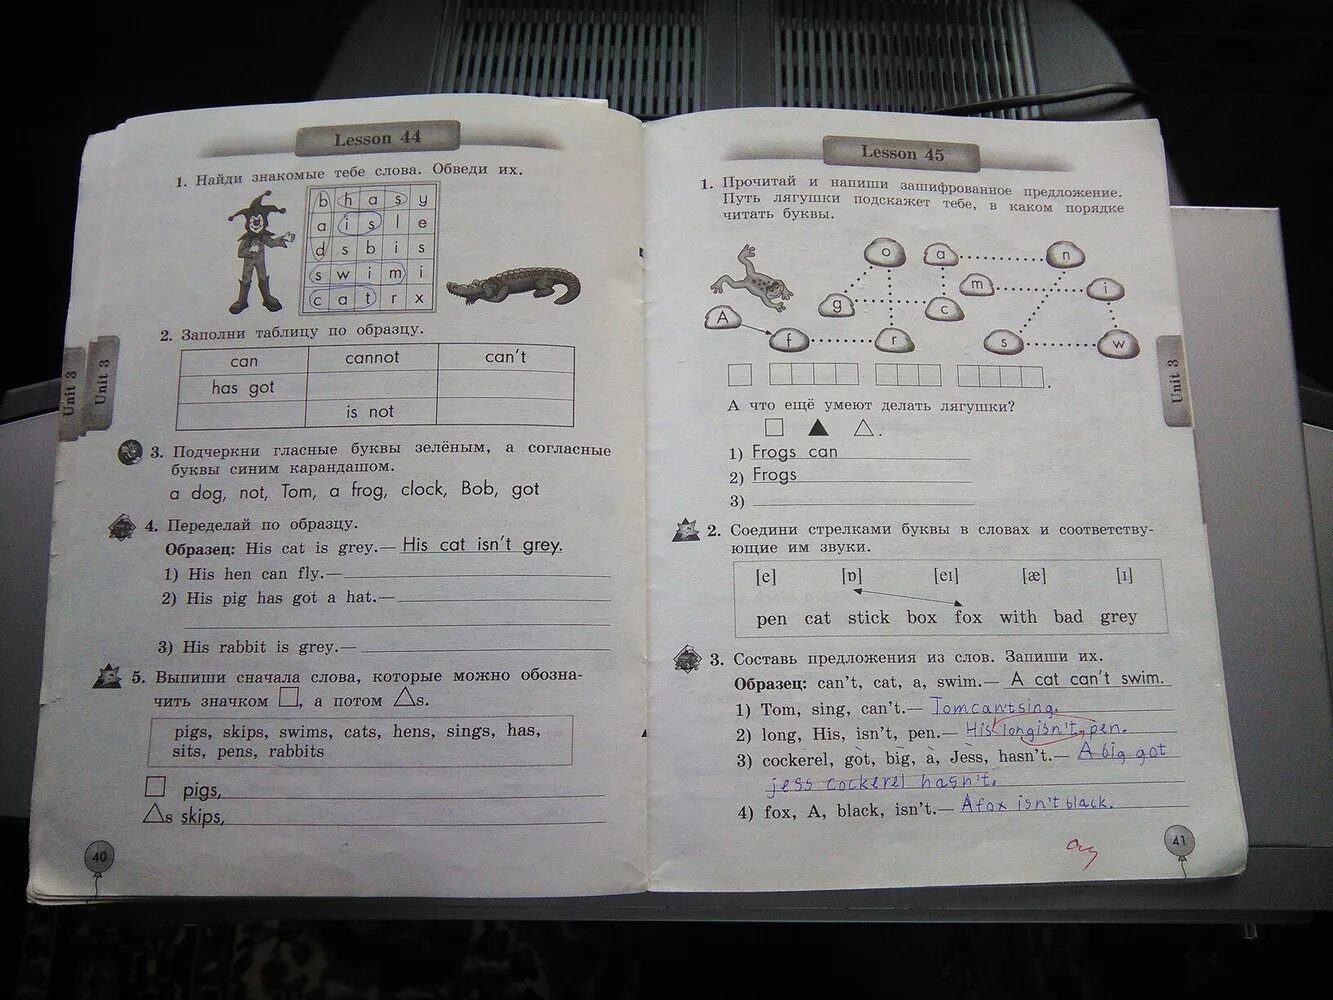 Lesson 44
1. Найди знакомые тебе слова. Обведи их.
b h a s y
a i s l e
d s b i s
s w i m i
c a t r x
2. Заполни таблицу по образцу.
can cannot can't
has got
is not
3. Подчеркни гласные буквы зелёным, а согласные
буквы синим карандашом.
a dog, not, Tom, a frog, clock, Bob, got
4. Переделай по образцу.
Образец: His cat is grey.— His cat isn't grey.
1) His hen can fly.—
2) His pig has got a hat.—
3) His rabbit is grey.—
5. Выпиши сначала слова, которые можно обозна-
чить значком □, а потом △s.
pigs, skips, swims, cats, hens, sings, has,
sits, pens, rabbits
□ pigs,
△s skips,
40
Unit 3
Unit 3
Lesson 45
1. Прочитай и напиши зашифрованное предложение.
Путь лягушки подскажет тебе, в каком порядке
читать буквы.
o a n
m i
g c
A
f r s w
А что ещё умеют делать лягушки?
1) Frogs can
2) Frogs
3)
2. Соедини стрелками буквы в словах и соответству-
ющие им звуки.
[e] [ɒ] [eɪ] [æ] [ɪ]
pen cat stick box fox with bad grey
3. Составь предложения из слов. Запиши их.
Образец: can't, cat, a, swim.— A cat can't swim.
1) Tom, sing, can't.— Tom can't sing.
2) long, His, isn't, pen.— His long isn't pen.
3) cockerel, got, big, a, Jess, hasn't.— A big got
jess cockerel hasn't.
4) fox, A, black, isn't.— A fox isn't black.
41
Unit 3